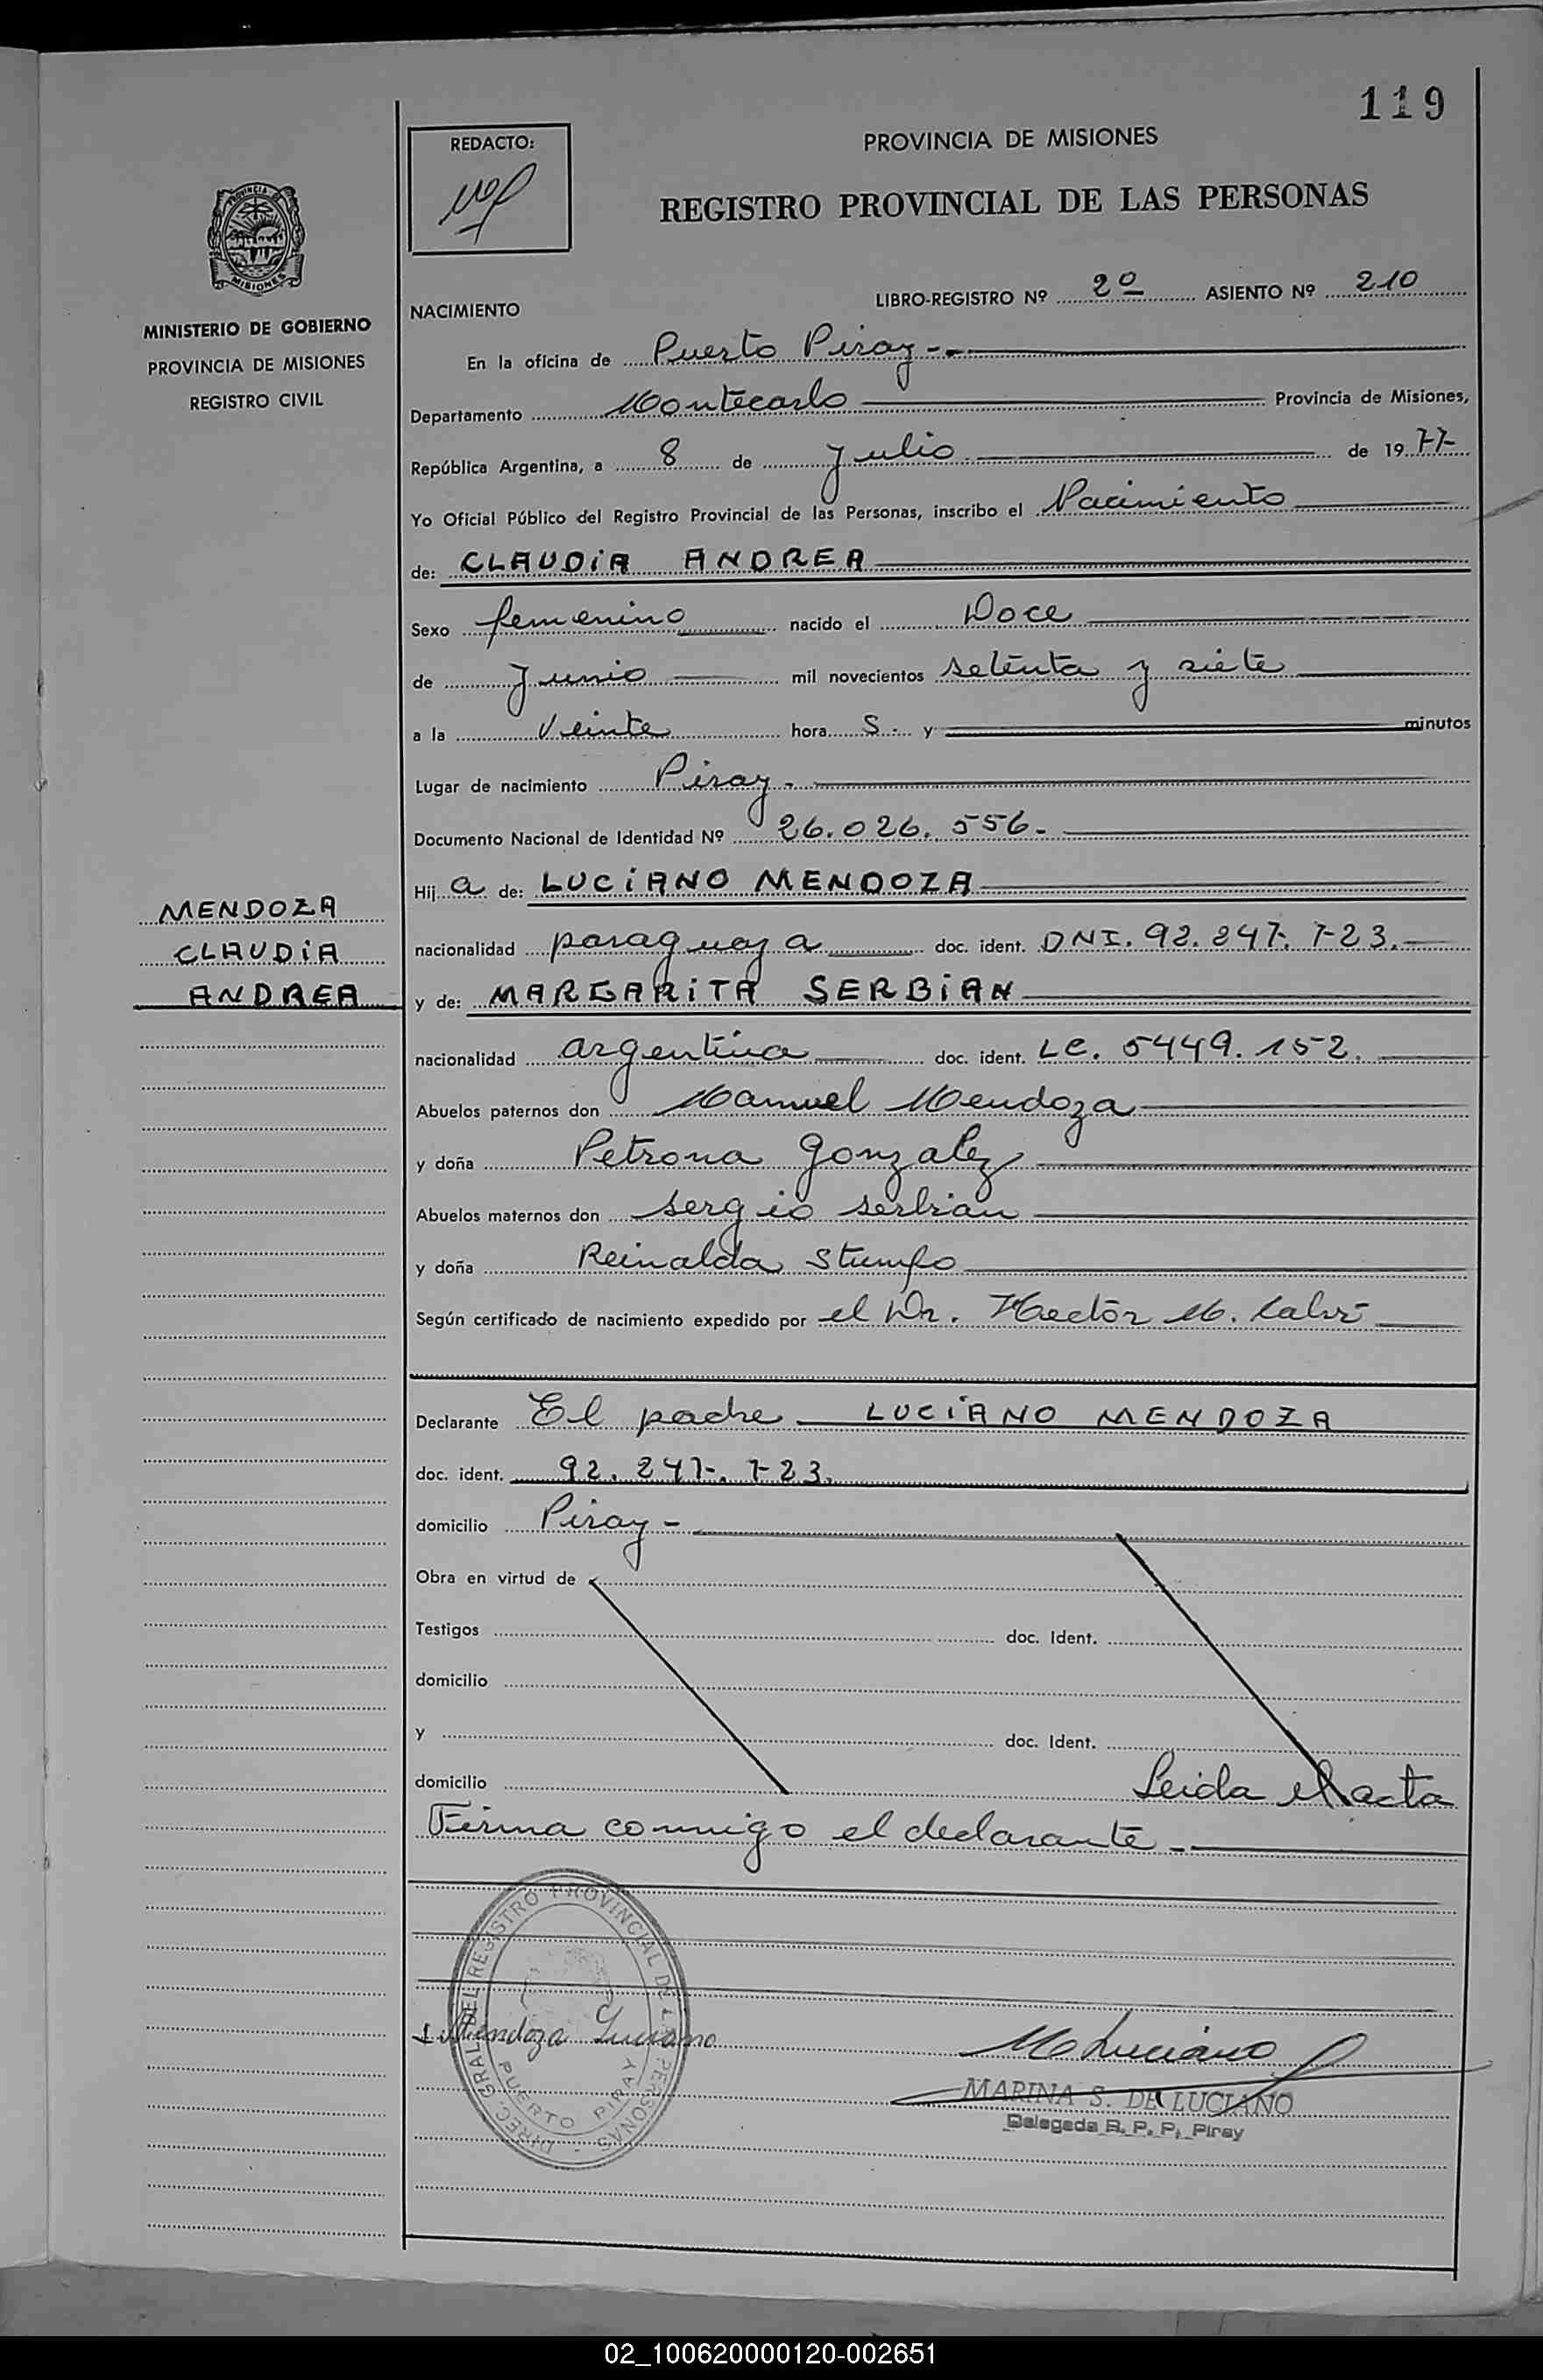 119
REDACTO:
PROVINCIA DE MISIONES
REGISTRO PROVINCIAL DE LAS PERSONAS
PROVINCIA
MISIONES
MINISTERIO DE GOBIERNO
PROVINCIA DE MISIONES
REGISTRO CIVIL
NACIMIENTO LIBRO-REGISTRO Nº 2º ASIENTO Nº 210
En la oficina de Puerto Piray-
Departamento Montecarlo Provincia de Misiones,
República Argentina, a 8 de Julio de 1977
Yo Oficial Público del Registro Provincial de las Personas, inscribo el Nacimiento
de: CLAUDIA ANDREA
Sexo femenino nacido el Doce
de Junio mil novecientos setenta y siete
a la Veinte hora S. y minutos
Lugar de nacimiento Piray.
Documento Nacional de Identidad Nº 26.026.556.
Hij a de: LUCIANO MENDOZA
MENDOZA
CLAUDIA
ANDREA
nacionalidad paraguaya doc. ident. DNI. 92.247.723.
y de: MARGARITA SERBIAN
nacionalidad argentina doc. ident. LC. 5449.152.
Abuelos paternos don Manuel Mendoza
y doña Petrona Gonzalez
Abuelos maternos don Sergio Serbian
y doña Reinalda Stumpo
Según certificado de nacimiento expedido por el Dr. Hector M.
Declarante El padre LUCIANO MENDOZA
doc. ident. 92.247.723.
domicilio Piray-
Obra en virtud de
Testigos doc. Ident.
domicilio
y doc. Ident.
domicilio Leida el acta
Firma conmigo el declarante.
DIREC. GRAL. DEL REGISTRO PROVINCIAL DE L PERSONAS
PUERTO PIRAY
Mendoza Luciano
M Luciano
MARINA S. DE LUCIANO
Delegada R. P. P. Piray
02_100620000120-002651